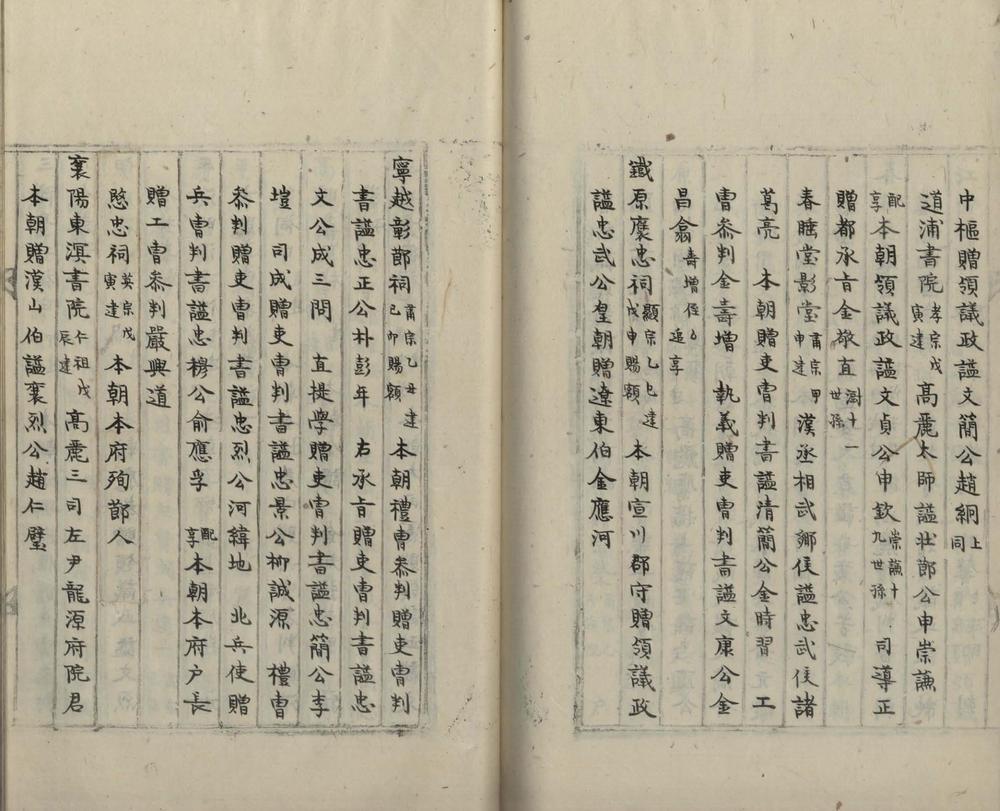 中樞贈領議政諡文簡公趙絅上同
道浦書院孝宗戊寅建 高麗太師諡壯節公申崇謙
配享本朝領議政諡文貞公申欽崇謙十九世孫 司導正
贈都承旨金敬直澍十一世孫
春睡堂影堂肅宗甲申建 漢丞相武鄉侯諡忠武侯諸
葛亮 本朝贈吏曹判書諡清簡公金時習 工
曹叅判金壽增 執義贈吏曹判書諡文康公金
昌翕壽增侄公追享
鐵原褒忠祠顯宗乙巳建戊申賜額 本朝宣川郡守贈領議政
諡忠武公皇朝贈遼東伯金應河
寧越彰節祠肅宗乙丑建己卯賜額 本朝禮曹叅判贈吏曹判
書諡忠正公朴彭年 右承旨贈吏曹判書諡忠
文公成三問 直提學贈吏曹判書諡忠簡公李
塏 司成贈吏曹判書諡忠景公柳誠源 禮曹
叅判贈吏曹判書諡忠烈公河緯地 北兵使贈
兵曹判書諡忠穆公俞應孚 配享本朝本府戶長
贈工曹叅判嚴興道
愍忠祠英宗戊寅建 本朝本府殉節人
襄陽東溟書院仁祖戊辰建 高麗三司左尹龍源府院君
本朝贈漢山伯諡襄烈公趙仁璧